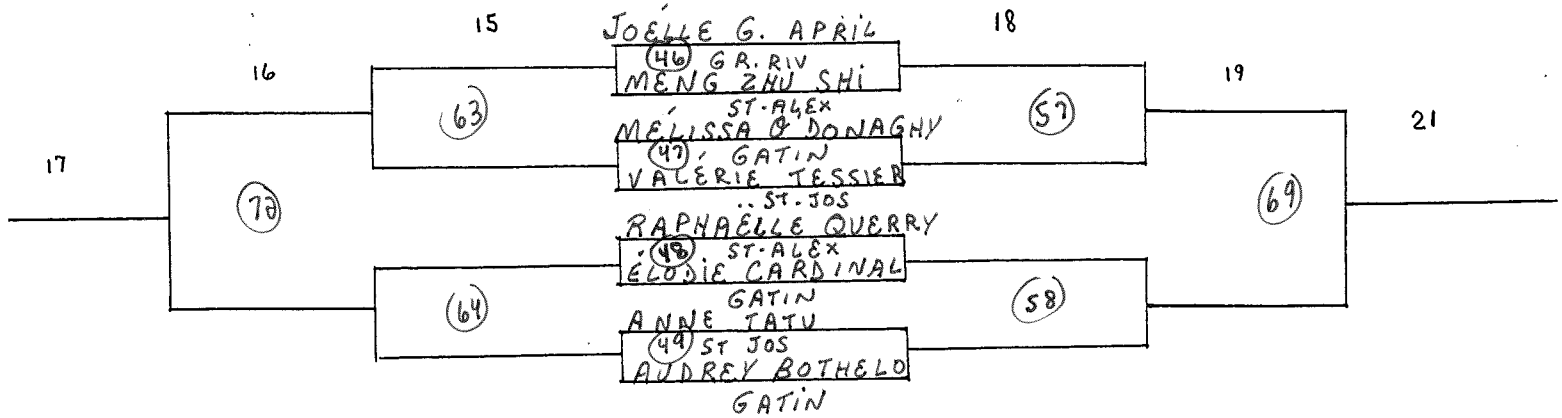 15
JOËLLE G. APRIL
18
16
46 GR. RIV
MENG ZHU SHI
19
63
ST-ALEX
57
MÉLISSA O'DONAGHY
21
17
47 GATIN
VALÉRIE TESSIER
72
ST-JOS
69
RAPHAËLLE QUERRY
48 ST-ALEX
ÉLODIE CARDINAL
64
GATIN
58
ANNE TATU
49 ST JOS
AUDREY BOTHELO
GATIN